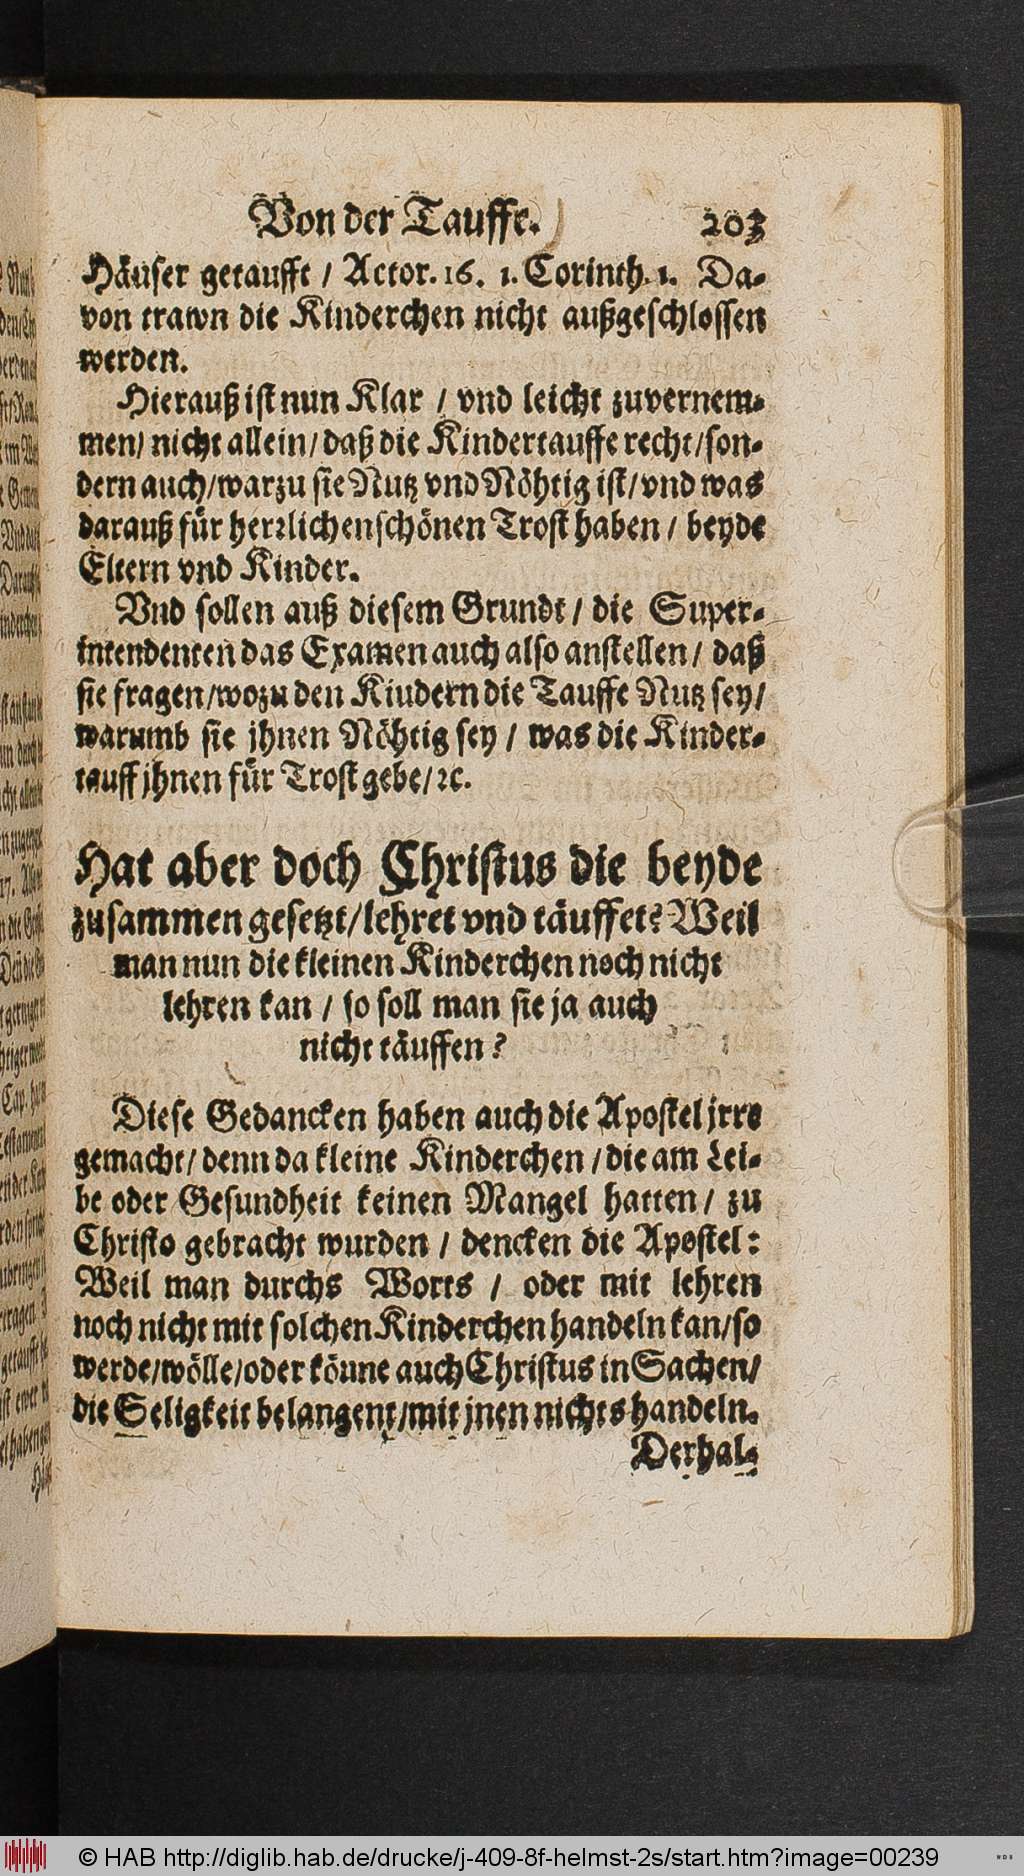 Von der Tauffe. 203
Häuser getaufft / Actor. 16. 1. Corinth. 1. Da-
von trawn die Kinderchen nicht außgeschlossen
werden.
Hierauß ist nun Klar / vnd leicht zuvernem-
men/ nicht allein/ daß die Kindertauffe recht/ son-
dern auch/ warzu sie Nutz vnd Nöhtig ist/ vnd was
darauß für herrlichen schönen Trost haben / beyde
Eltern vnd Kinder.
Vnd sollen auß diesem Grundt / die Super-
intendenten das Examen auch also anstellen / daß
sie fragen/ wozu den Kiudern die Tauffe Nutz sey/
warumb sie jhnen Nöhtig sey / was die Kinder-
tauff jhnen für Trost gebe/ ꝛc.
Hat aber doch Christus die beyde
zusammen gesetzt/ lehret vnd täuffet? Weil
man nun die kleinen Kinderchen noch nicht
lehren kan / so soll man sie ja auch
nicht täuffen?
Diese Gedancken haben auch die Apostel jrre
gemacht/ denn da kleine Kinderchen / die am Lei-
be oder Gesundheit keinen Mangel hatten / zu
Christo gebracht wurden / dencken die Apostel:
Weil man durchs Worts / oder mit lehren
noch nicht mit solchen Kinderchen handeln kan/ so
werde/ wölle/ oder köune auch Christus in Sachen/
die Seligkeit belangent/ mit jnen nichts handeln.
Derhal-
© HAB http://diglib.hab.de/drucke/j-409-8f-helmst-2s/start.htm?image=00239